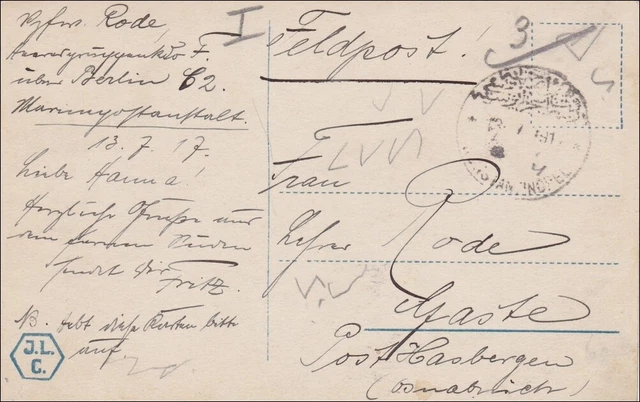 Rode,
über Berlin C2.
Marinepostanstalt.
13.7.17.
Liebe Hanna!
Herzliche Grüße aus
dem fernen Süden
sendet dir
Fritz.
NB. hebt diese Karten bitte
auf.
J.L.
C.
I
Feldpost!
3
Frau
Lehrer Rode
Gaste
Post Hasbergen
(Osnabrück)